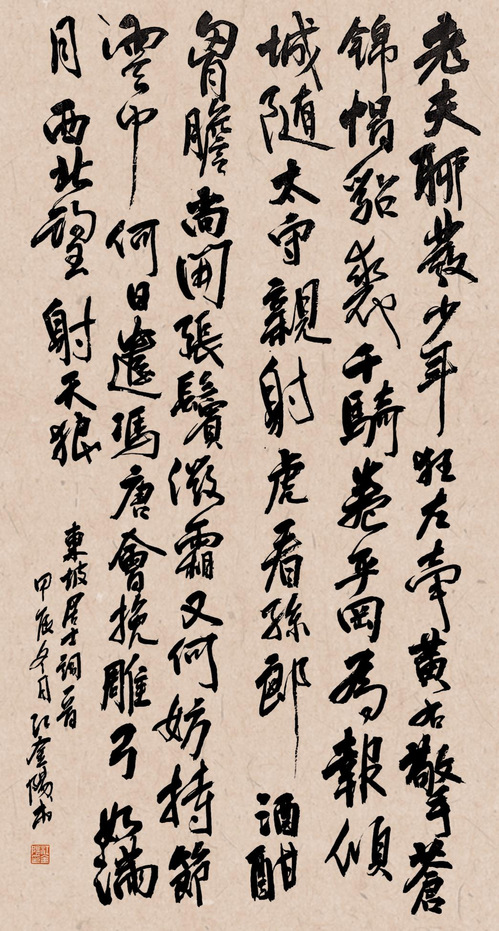 老夫聊發少年狂左牽黃右擎蒼
錦帽貂裘千騎卷平岡為報傾
城随太守親射虎看孫郎酒酣
胷膽尚開張鬢微霜又何妨持節
雲中何日遣馮唐會挽雕弓如滿
月西北望射天狼
東坡居士詞一首
甲辰冬月